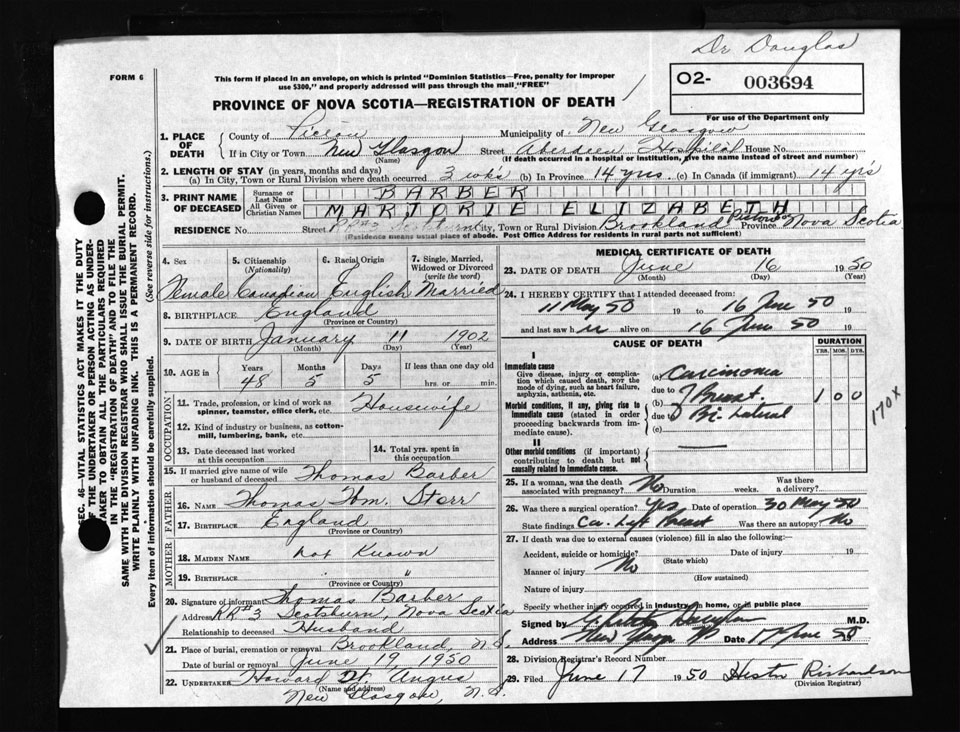 Dr Douglas
FORM 6
This form if placed in an envelope, on which is printed "Dominion Statistics—Free, penalty for improper
use $300," and properly addressed will pass through the mail "FREE"
O2- 003694
For use of the Department only
PROVINCE OF NOVA SCOTIA—REGISTRATION OF DEATH
SEC. 46—VITAL STATISTICS ACT MAKES IT THE DUTY
OF THE UNDERTAKER OR PERSON ACTING AS UNDER-
TAKER TO OBTAIN ALL THE PARTICULARS REQUIRED
IN THE "REGISTRATION OF DEATH" AND TO FILE THE
SAME WITH THE DIVISION REGISTRAR WHO SHALL ISSUE THE BURIAL PERMIT.
WRITE PLAINLY WITH UNFADING INK. THIS IS A PERMANENT RECORD.
Every item of information should be carefully supplied. (See reverse side for instructions.)
1. PLACE OF DEATH
County of Pictou Municipality of New Glasgow
If in City or Town New Glasgow Street Aberdeen Hospital House No.
(Name) (If death occurred in a hospital or institution, give the name instead of street and number)
2. LENGTH OF STAY (in years, months and days)
(a) In City, Town or Rural Division where death occurred 3 wks (b) In Province 14 yrs. (c) In Canada (if immigrant) 14 yrs
3. PRINT NAME OF DECEASED
Surname or Last Name BARBER
All Given or Christian Names MARJORIE ELIZABETH
RESIDENCE No. Street RR#3 Scotsburn City, Town or Rural Division Brookland Pictou Co Province Nova Scotia
(Residence means usual place of abode. Post Office Address for residents in rural parts not sufficient)
4. Sex 5. Citizenship (Nationality) 6. Racial Origin 7. Single, Married, Widowed or Divorced (write the word)
Female Canadian English Married
8. BIRTHPLACE England
(Province or Country)
9. DATE OF BIRTH January 11 1902
(Month) (Day) (Year)
10. AGE in Years Months Days If less than one day old
48 5 5 hrs. or min.
11. Trade, profession, or kind of work as spinner, teamster, office clerk, etc. Housewife
12. Kind of industry or business, as cotton-mill, lumbering, bank, etc.
13. Date deceased last worked at this occupation 14. Total yrs. spent in this occupation
15. If married give name of wife or husband of deceased Thomas Barber
FATHER
16. Name Thomas Wm. Storr
17. BIRTHPLACE England
(Province or Country)
MOTHER
18. MAIDEN NAME not Known
19. BIRTHPLACE " "
(Province or Country)
20. Signature of informant Thomas Barber
Address RR#3 Scotsburn, Nova Scotia
Relationship to deceased Husband
21. Place of burial, cremation or removal Brookland, N.S.
Date of burial or removal June 19, 1950
22. UNDERTAKER Howard W. Angus
(Name and address)
New Glasgow, N.S.
MEDICAL CERTIFICATE OF DEATH
23. DATE OF DEATH June 16 1950
(Month) (Day) (Year)
24. I HEREBY CERTIFY that I attended deceased from:
11 May 50 19 to 16 June 50 19
and last saw her alive on 16 June 50 19
CAUSE OF DEATH DURATION
YRS. MOS. DYS.
I
Immediate cause
Give disease, injury or complication which caused death, NOT the mode of dying, such as heart failure, asphyxia, asthenia, etc.
(a) Carcinomia
due to
(b) Breast 1 0 0
Morbid conditions, if any, giving rise to immediate cause (stated in order proceeding backwards from immediate cause).
due to Bi-lateral
(c)
II
Other morbid conditions (if important) contributing to death but not causally related to immediate cause.
170X
25. If a woman, was the death associated with pregnancy? No Duration weeks. Was there a delivery?
26. Was there a surgical operation? Yes Date of operation 30 May 50
State findings Ca. Left Breast Was there an autopsy? No
27. If death was due to external causes (violence) fill in also the following:—
Accident, suicide or homicide? Date of injury 19
(State which)
Manner of injury No
(How sustained)
Nature of injury
Specify whether injury occurred in industry, in home, or in public place
Signed by Douglas M.D.
Address New Glasgow NS Date 17 June 50
28. Division Registrar's Record Number
29. Filed June 17 1950 Hester Richardson
(Division Registrar)